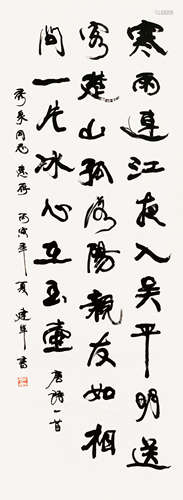 寒雨連江夜入吴平明送
客楚山孤洛陽親友如相
問一片冰心在玉壺 唐詩一首
同志惠存 丙寅年夏 書